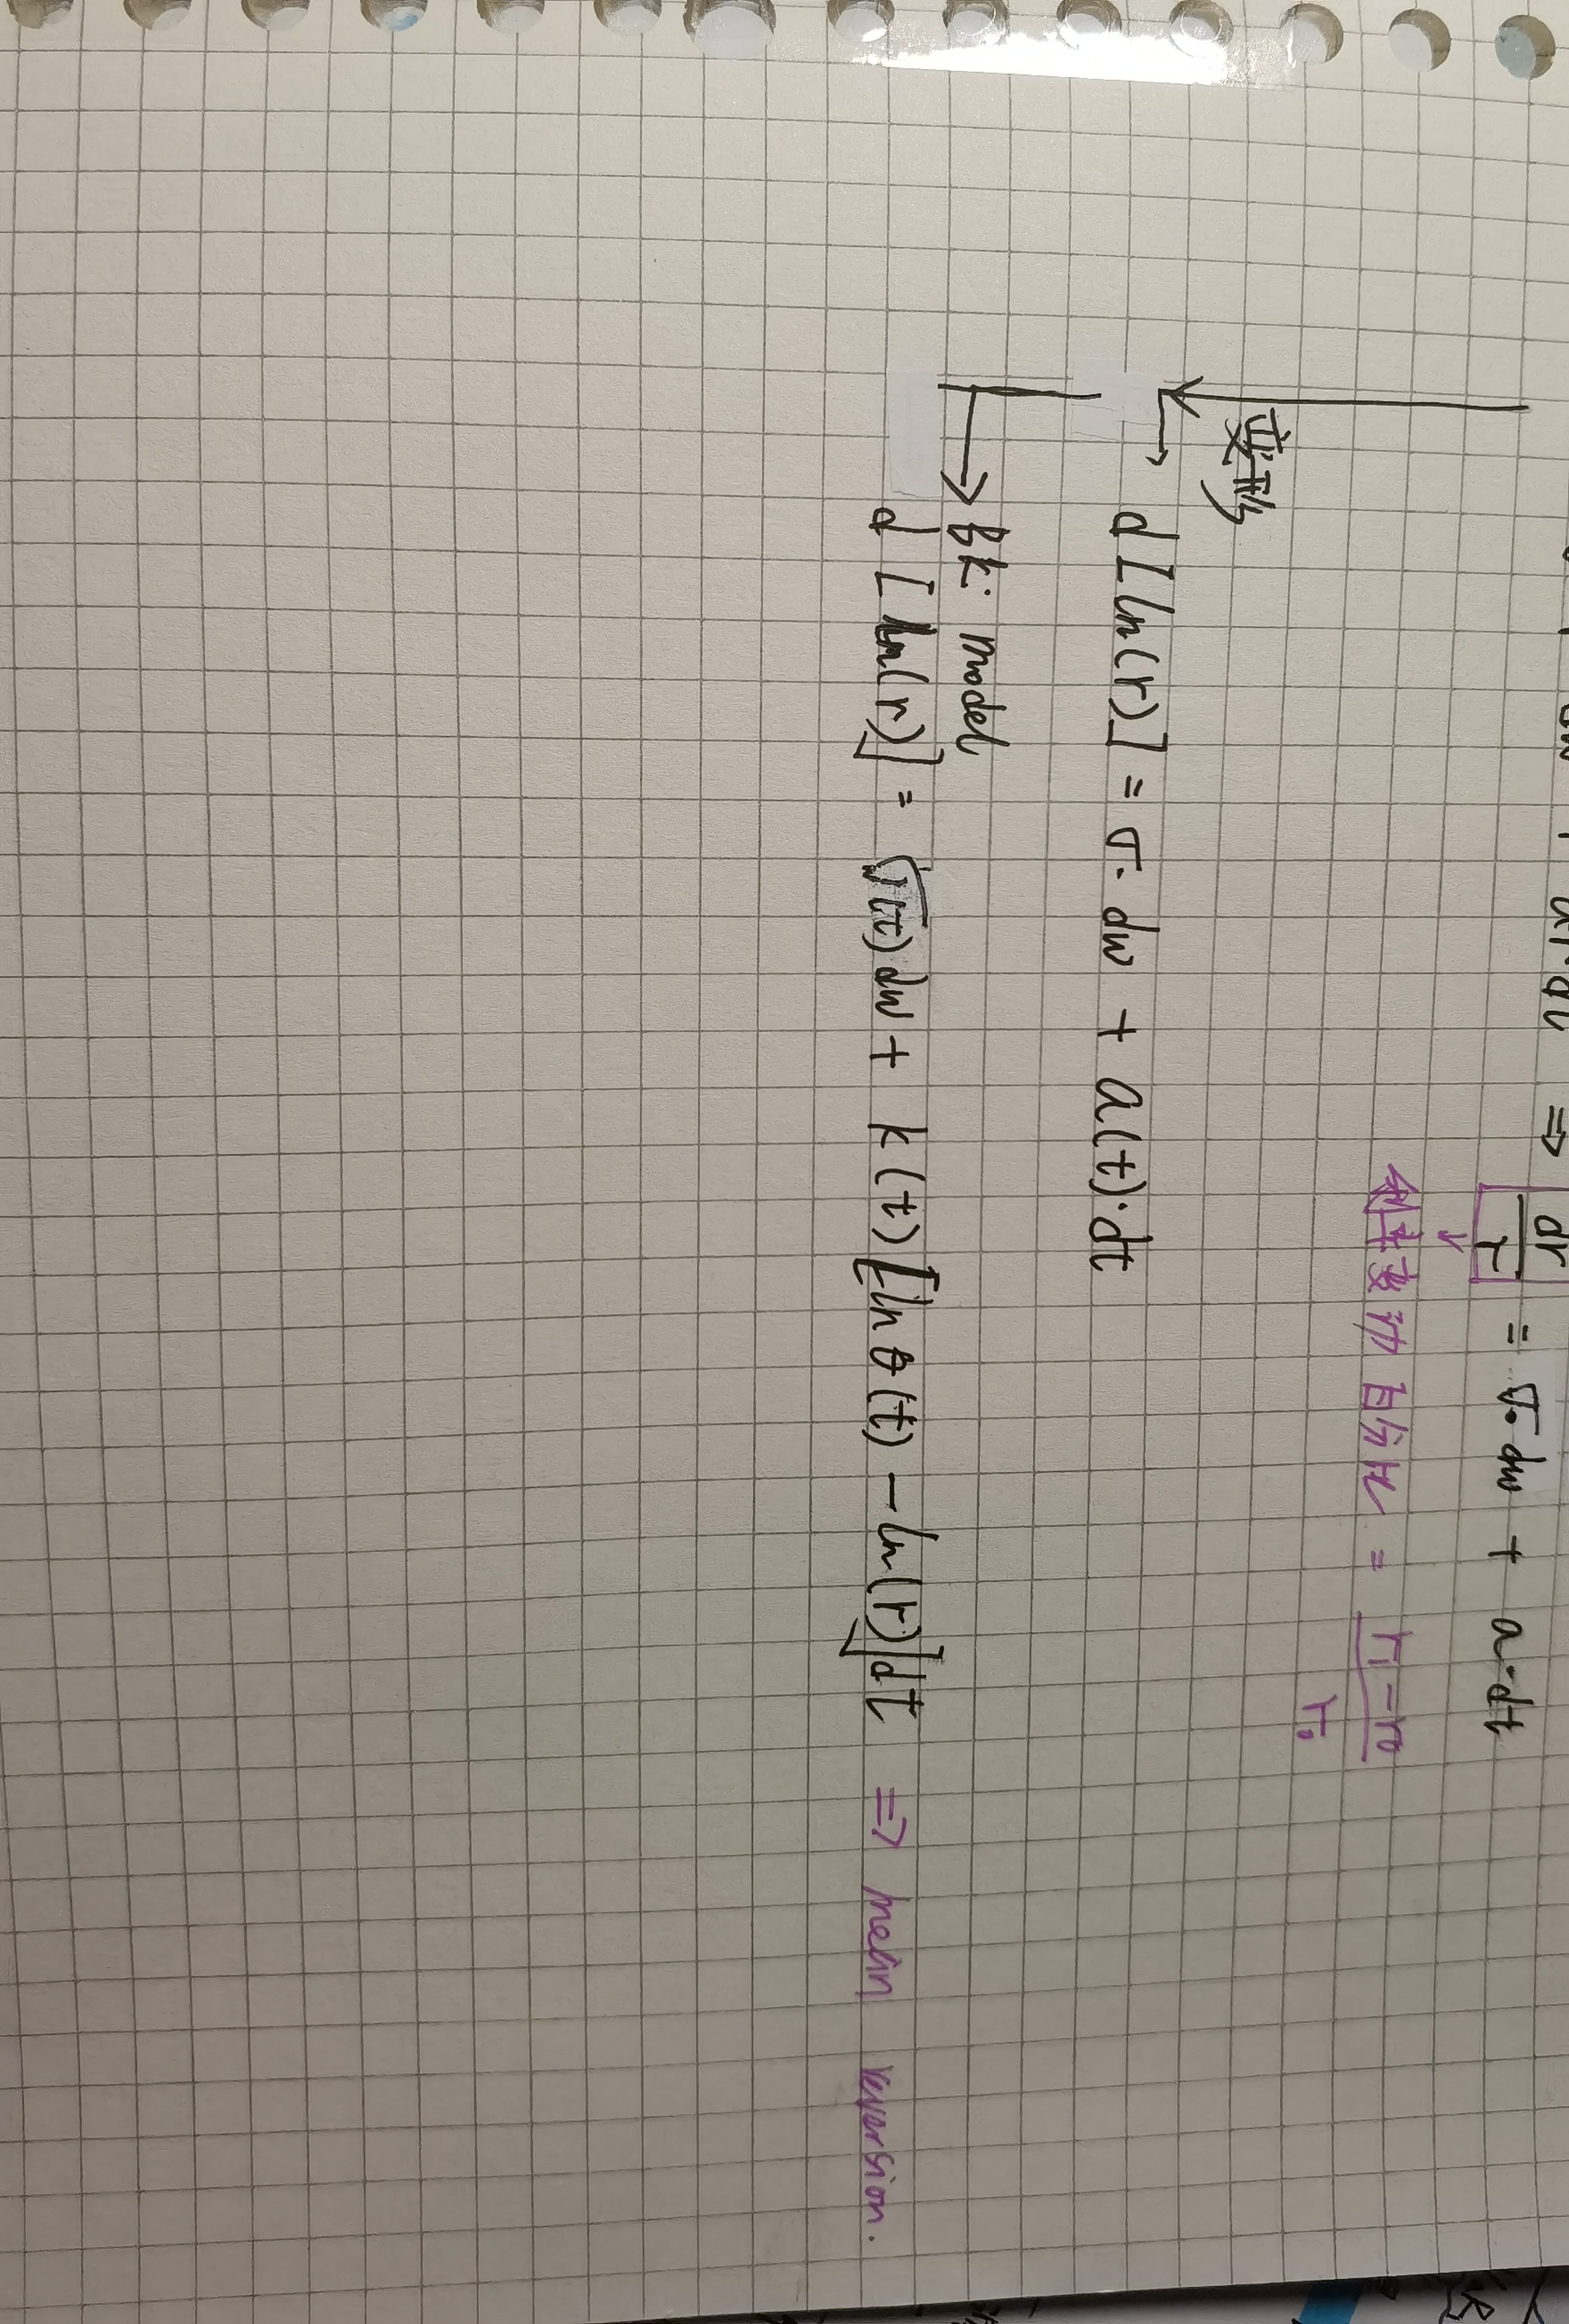 ⇒ dr/r = σ·dw + a·dt
利率变动百分比 = (r₁ - r₀)/r₀
变形
d[ln(r)] = σ·dw + a(t)·dt
BK: model
d[ln(r)] = σ(t)dw + k(t)[lnθ(t) - ln(r)]dt ⇒ mean reversion.